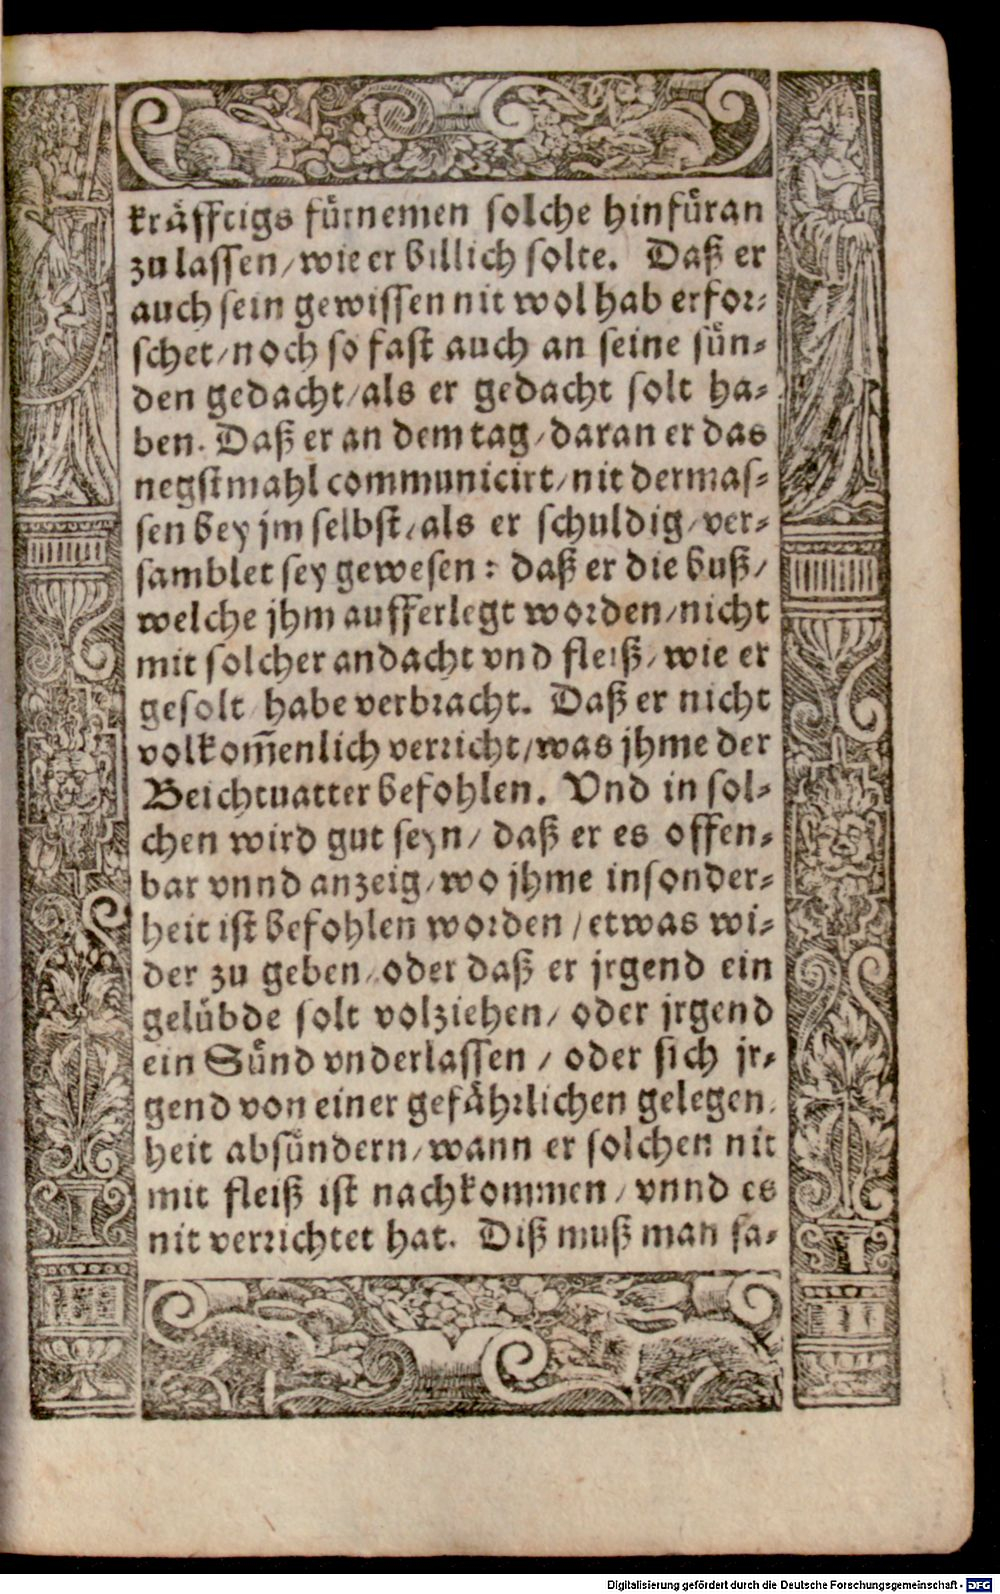 kräfftigs fürnemen solche hinfüran
zu lassen/wie er billich solte. Daß er
auch sein gewissen nit wol hab erfor⸗
schet/noch so fast auch an seine sün⸗
den gedacht/als er gedacht solt ha⸗
ben. Daß er an dem tag/daran er das
negstmahl communicirt/nit dermas⸗
sen bey jm selbst/als er schuldig/ver⸗
samblet sey gewesen: daß er die buß/
welche jhm aufferlegt worden/nicht
mit solcher andacht vnd fleiß/wie er
gesolt habe verbracht. Daß er nicht
volkom̃enlich verricht/was jhme der
Beichtuatter befohlen. Vnd in sol⸗
chen wird gut seyn/ daß er es offen⸗
bar vnnd anzeig/wo jhme insonder⸗
heit ist befohlen worden/etwas wi⸗
der zu geben/oder daß er jrgend ein
gelübde solt volziehen/ oder jrgend
ein Sünd vnderlassen / oder sich jr⸗
gend von einer gefährlichen gelegen⸗
heit absündern/wann er solchen nit
mit fleiß ist nachkommen/ vnnd es
nit verrichtet hat. Diß muß man sa⸗
Digitalisierung gefördert durch die Deutsche Forschungsgemeinschaft - DFG